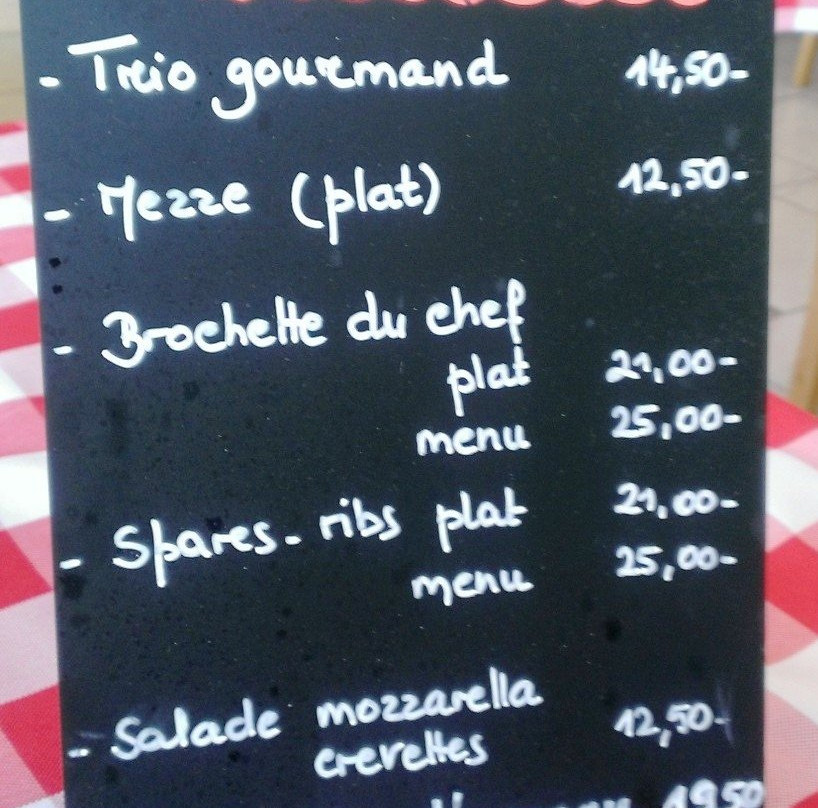 - Trio gourmand 14,50-
- Mezze (plat) 12,50-
- Brochette du chef
plat 21,00-
menu 25,00-
- Spares-ribs plat 21,00-
menu 25,00-
- Salade mozzarella
crevettes 12,50-